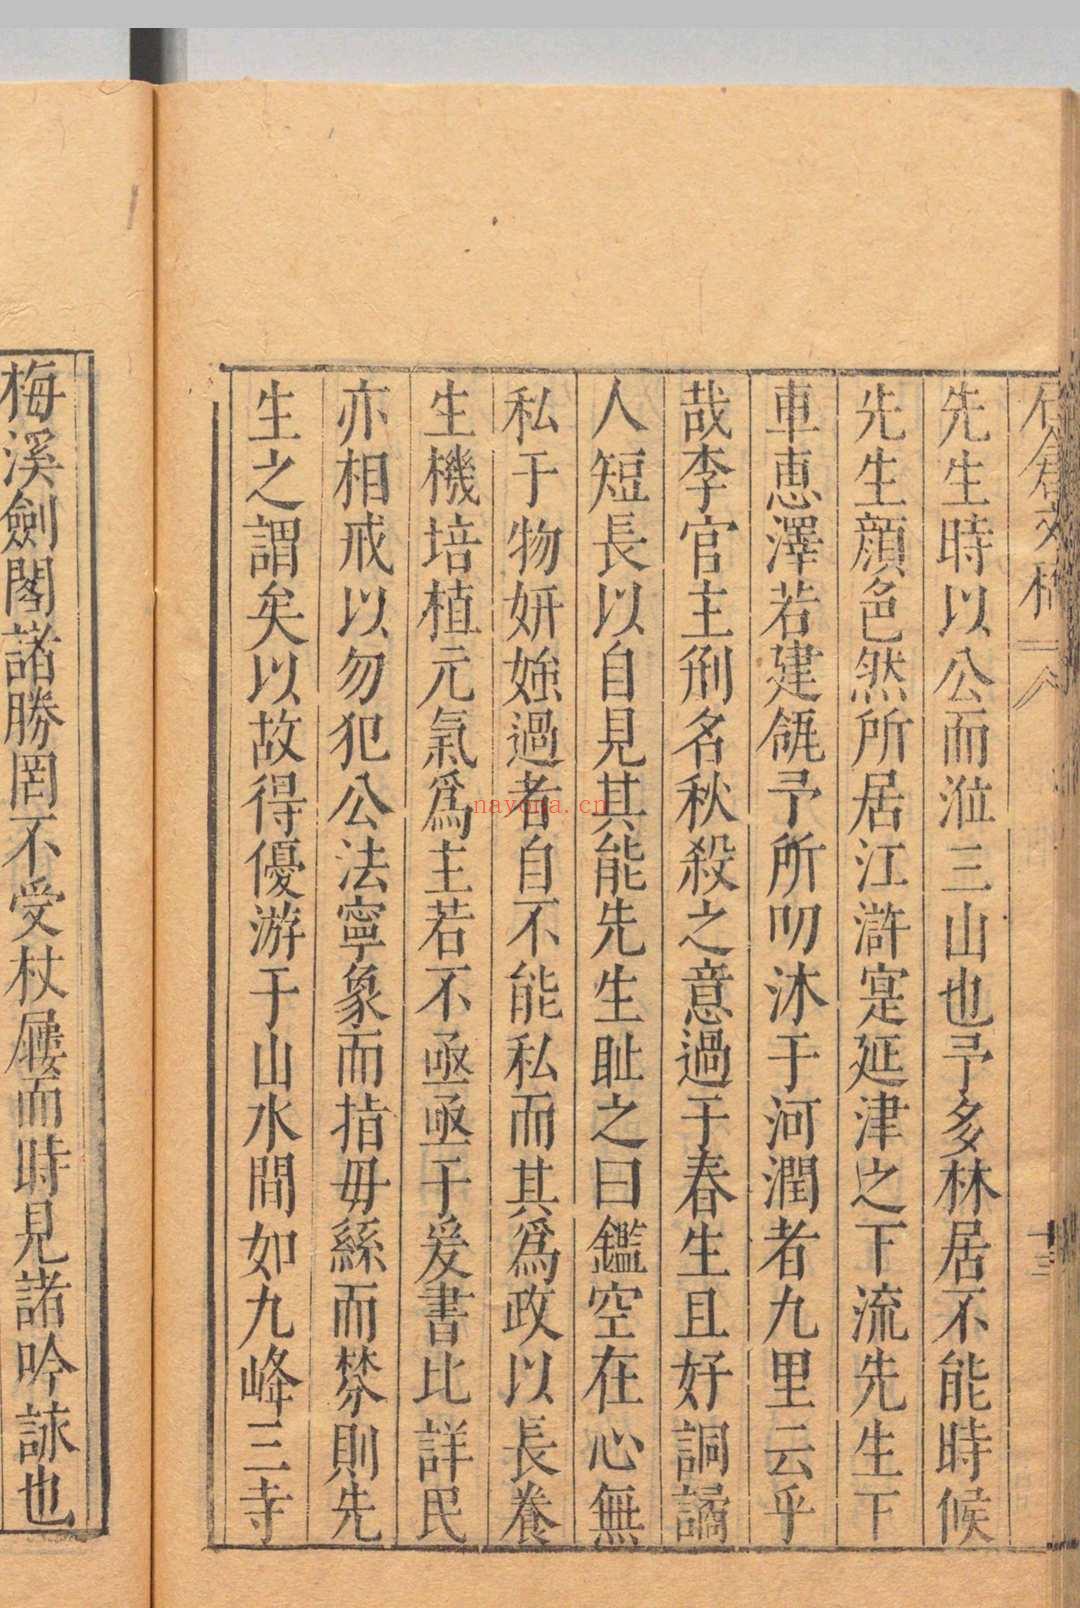 先生時以公而涖三山也予多林居不能時候
先生顔色然所居江滸寔延津之下流先生下
車恵澤若建瓴予所叨沐于河潤者九里云乎
哉李官主刑名秋殺之意過于春生且好詗譎
人短長以自見其能先生耻之曰鑑空在心無
私于物妍媸過者自不能私而其爲政以長養
生機培植元氣爲主若不亟亟于爰書比詳民
亦相戒以勿犯公法寧象而指毋絲而棼則先
生之謂矣以故得優游于山水間如九峰三寺
梅溪劍閣諸勝罔不受杖屨而時見諸吟詠也
nayona.cn